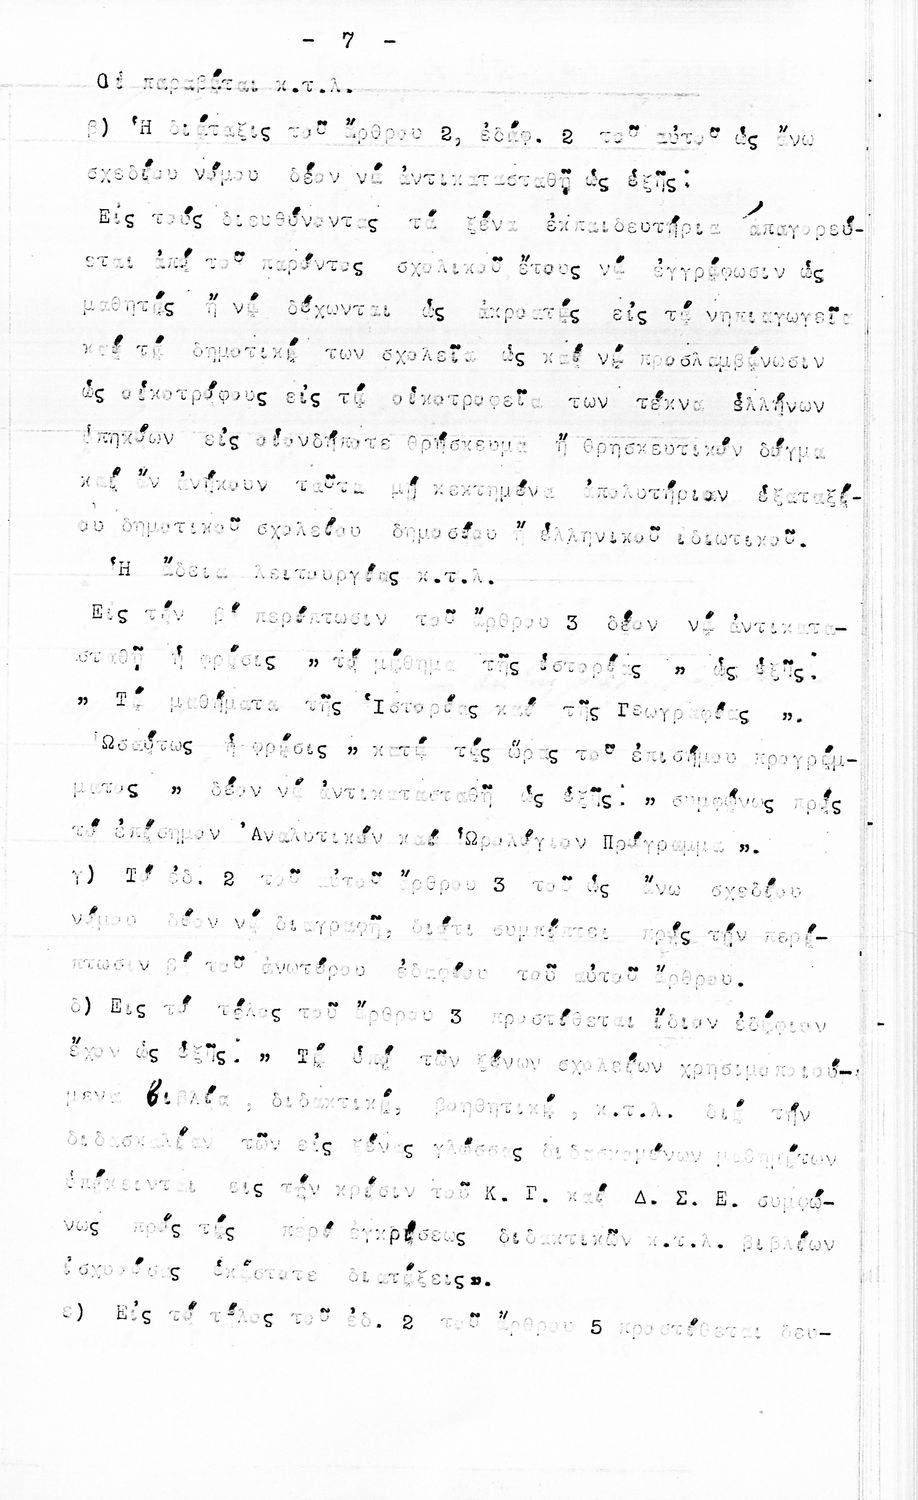 - 7 -
Οἱ παραβάται κ.τ.λ.
β) Ἡ διάταξις τοῦ ἄρθρου 2, ἐδάφ. 2 τοῦ αὐτοῦ ὡς ἄνω
σχεδίου νόμου δέον νά ἀντικατασταθῇ ὡς ἑξῆς:
Εἰς τούς διευθύνοντας τά ξένα ἐκπαιδευτήρια ἀπαγορεύ-
εται ἀπό τοῦ παρόντος σχολικοῦ ἔτους νά ἐγγράφωσιν ὡς
μαθητάς ἤ νά δέχωνται ὡς ἀκροατάς εἰς τά νηπιαγωγεῖα
καί τά δημοτικά των σχολεῖα ὡς καί νά προσλαμβάνωσιν
ὡς οἰκοτρόφους εἰς τά οἰκοτροφεῖα των τέκνα ἑλλήνων
ὑπηκόων εἰς οἱονδήποτε θρήσκευμα ἤ θρησκευτικόν δόγμα
καί ἄν ἀνήκουν ταῦτα μή κεκτημένα ἀπολυτήριον ἑξαταξί-
ου δημοτικοῦ σχολείου δημοσίου ἤ ἑλληνικοῦ ἰδιωτικοῦ.
Ἡ ἄδεια λειτουργίας κ.τ.λ.
Εἰς τήν β' περίπτωσιν τοῦ ἄρθρου 3 δέον νά ἀντικατα-
σταθῇ ἡ φράσις „ τό μάθημα τῆς ἱστορίας „ ὡς ἑξῆς:
„ Τά μαθήματα τῆς Ἱστορίας καί τῆς Γεωγραφίας „.
Ὡσαύτως ἡ φράσις „ κατά τάς ὥρας τοῦ ἐπισήμου προγράμ-
ματος „ δέον νά ἀντικατασταθῇ ὡς ἑξῆς: „ συμφώνως πρός
τό ἐπίσημον Ἀναλυτικόν καί Ὡρολόγιον Πρόγραμμα „.
γ) Τό ἐδ. 2 τοῦ αὐτοῦ ἄρθρου 3 τοῦ ὡς ἄνω σχεδίου
νόμου δέον νά διαγραφῇ, διότι συμπίπτει πρός τήν περί-
πτωσιν β' τοῦ ἀνωτέρου ἐδαφίου τοῦ αὐτοῦ ἄρθρου.
δ) Εις τό τέλος τοῦ ἄρθρου 3 προστίθεται ἴδιον ἐδάφιον
ἔχον ὡς ἑξῆς: „ Τά ὑπό τῶν ξένων σχολείων χρησιμοποιού-
μενα βιβλία , διδακτικά, βοηθητικά , κ.τ.λ. διά τήν
διδασκαλίαν τῶν εἰς ξένας γλώσσας διδασκομένων μαθημάτων
ὑπόκεινται εις τήν κρίσιν τοῦ Κ. Γ. καί Δ. Σ. Ε. συμφώ-
νως πρός τάς περί ἐγκρίσεως διδακτικῶν κ.τ.λ. βιβλίων
ἰσχυούσας ἑκάστοτε διατάξεις„.
ε) Εἰς τό τέλος τοῦ ἐδ. 2 τοῦ ἄρθρου 5 προστίθεται δευ-